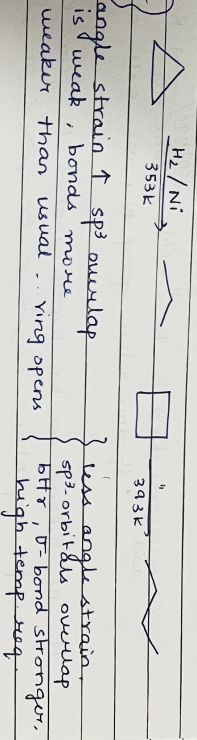 H₂/Ni
353K
"
393K
angle strain ↑ sp³ overlap
is weak, bonds more
weaker than usual ∴ ring opens
less angle strain,
sp³-orbitals overlap
btr, σ-bond stronger,
high temp. req.